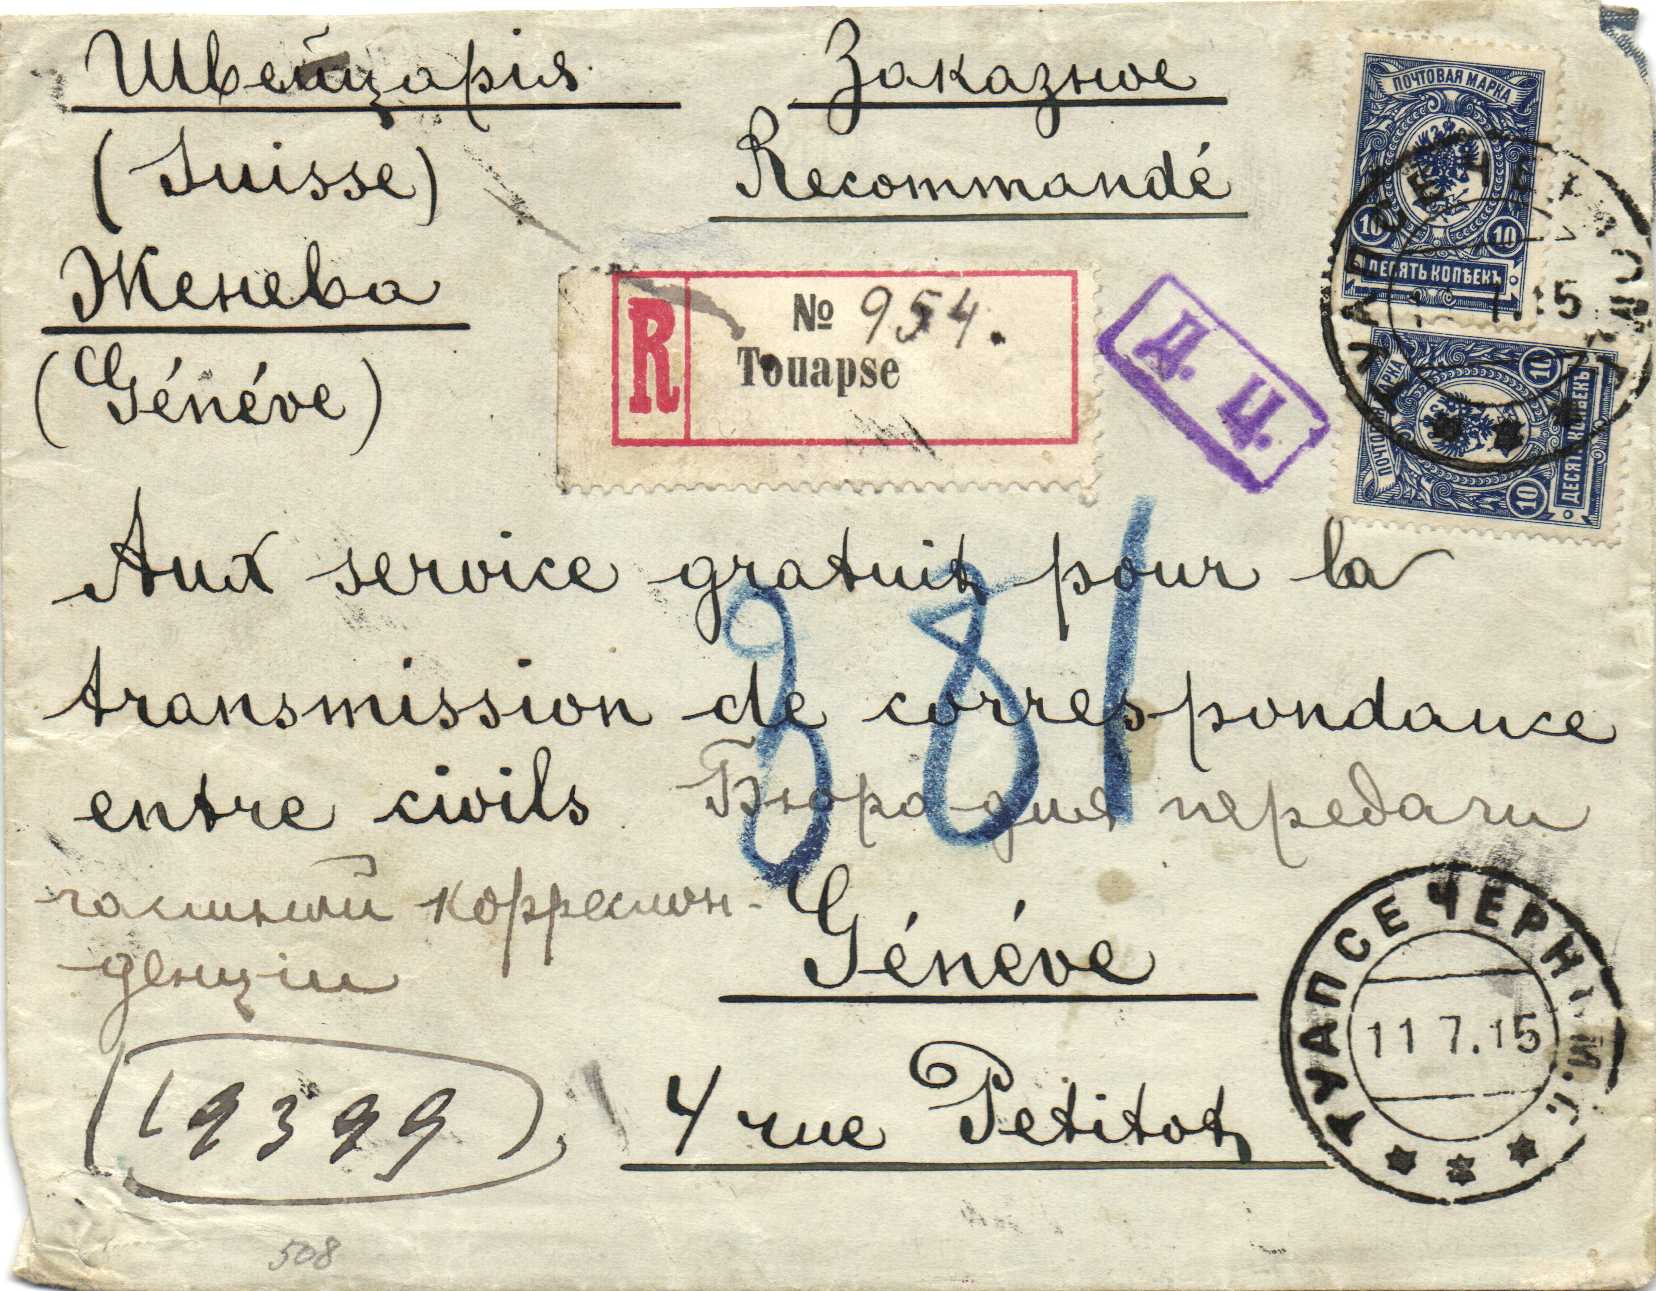 Швейцарія
(Suisse)
Женева
(Généve)
Заказное
Recommandé
ПОЧТОВАЯ МАРКА
10 10
ДЕСЯТЬ КОПѢЕКЪ
ПОЧТОВАЯ МАРКА
10 10
ДЕСЯТЬ КОПѢЕКЪ
R
№ 954.
Touapse
Д. Ц.
Aux service gratuit pour la
transmission de correspondance
entre civils Бюро для передачи
частной корреспон-
денціи
381
Généve
4 rue Petitot
19399
508
ТУАПСЕ ЧЕРН. Г.
11 7.15